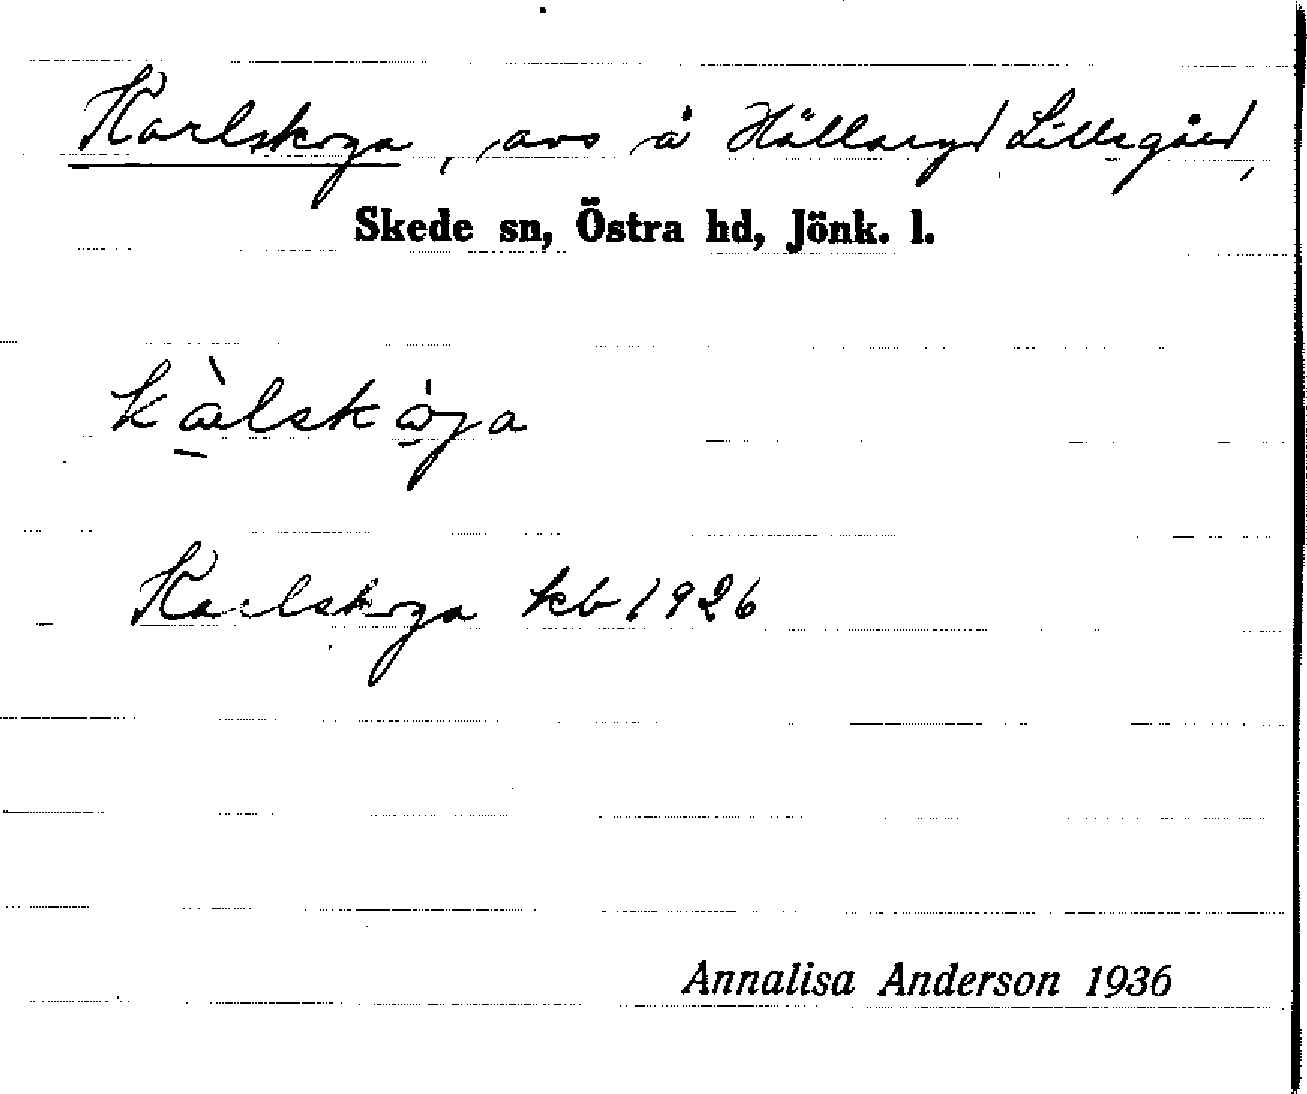 Karlskoga, avs å Hållaryd Lillegård,
Skede sn, Östra hd, Jönk. l.
kàlskåga
Karlskoga kb 1926
Annalisa Anderson 1936